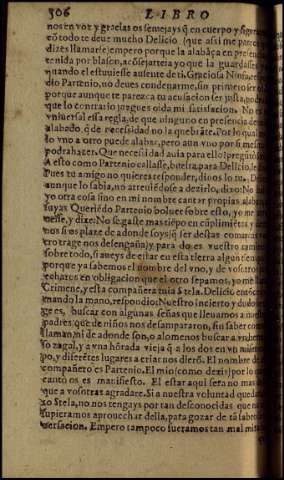 306 LIBRO
nos en voz y gracia os semejays q̃ en cuerpo y
eñ todo te deue mucho Delicio (que assi me
dizes llamarse) empero porque la alabãça en
tenida por blason, acõsejarteia yo que la guardasses
quando el estuuiesse ausente de ti. Graciosa Nimfa, respõ
dio Partenio, no deues condenarme, sin primero ser
porque aunque te parezca tu acusacion ser justa, podra
que lo contrario juzgues oida mi satisfacion. No es
vniuersal essa regla, de que ninguno en presencia de
alabado, q̃ de necessidad no la quebrãte. Por lo qual
lo vno a otro puede alabar, pero aun vno por si mesmo
podra hazer. Que necessidad auia para ello? pregũtò
A esto como Partenio callasse, buelta para Delicio, le
Pues tu amigo no quiere responder, di nos lo tu. De
aunque lo sabia, no atreuiẽdose a dezirlo, dixo: No
yo otra cosa sino en mi nombre cantar propias alabã
suyas. Queriẽdo Partenio boluer sobre esto, yo me
messe, y dixe: No se gaste mas tiẽpo en cũplimiẽtos y
nos si os plaze de adonde soys (q̃ ser destas comarcas
tro trage nos desengaña) y para do es vuestro camino
sobre todo, si aueys de estar en esta tierra algun tiempo
porque ya sabemos el nombre del vno, y de vosotros
echaros en obligacion que el otro sepamos, yo me llamo
Crimene, y esta compañera mia Stela. Delicio entonces
mando la mano, respondio: Nuestro incierto y dudoso
ge es, buscar con algunas señas que lleuamos a nuestros
padres, que de niños nos desampararon, sin saber como
llaman, ni de adonde son, o alomenos buscar a vn
lo zagal, y a vna hõrada vieja q̃ a los dos en vn mismo
po, y diferẽtes lugares a criar nos dierõ. El nombre de
compañero es Partenio. El mio (como dezis) por lo
cantò os es manifiesto. El estar aqui sera no mas de
que a vosotras agradare. Si a nuestra voluntad queda
xo Stela, no nos tengays por tan desconocidas que no
supieramos aprouechar della, para gozar de tã
uersacion. Empero tampoco fueramos tan mal